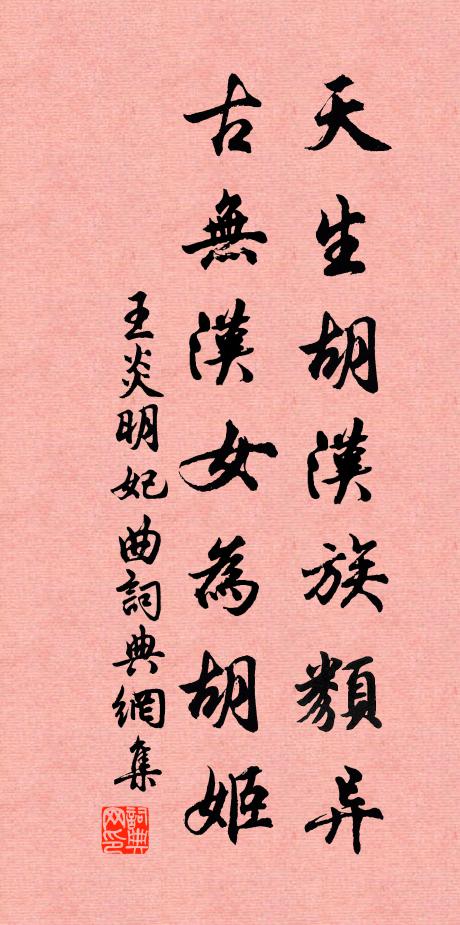 天生胡漢族類异
古無漢女為胡姬
王炎明妃曲詞典網集
詞典網印